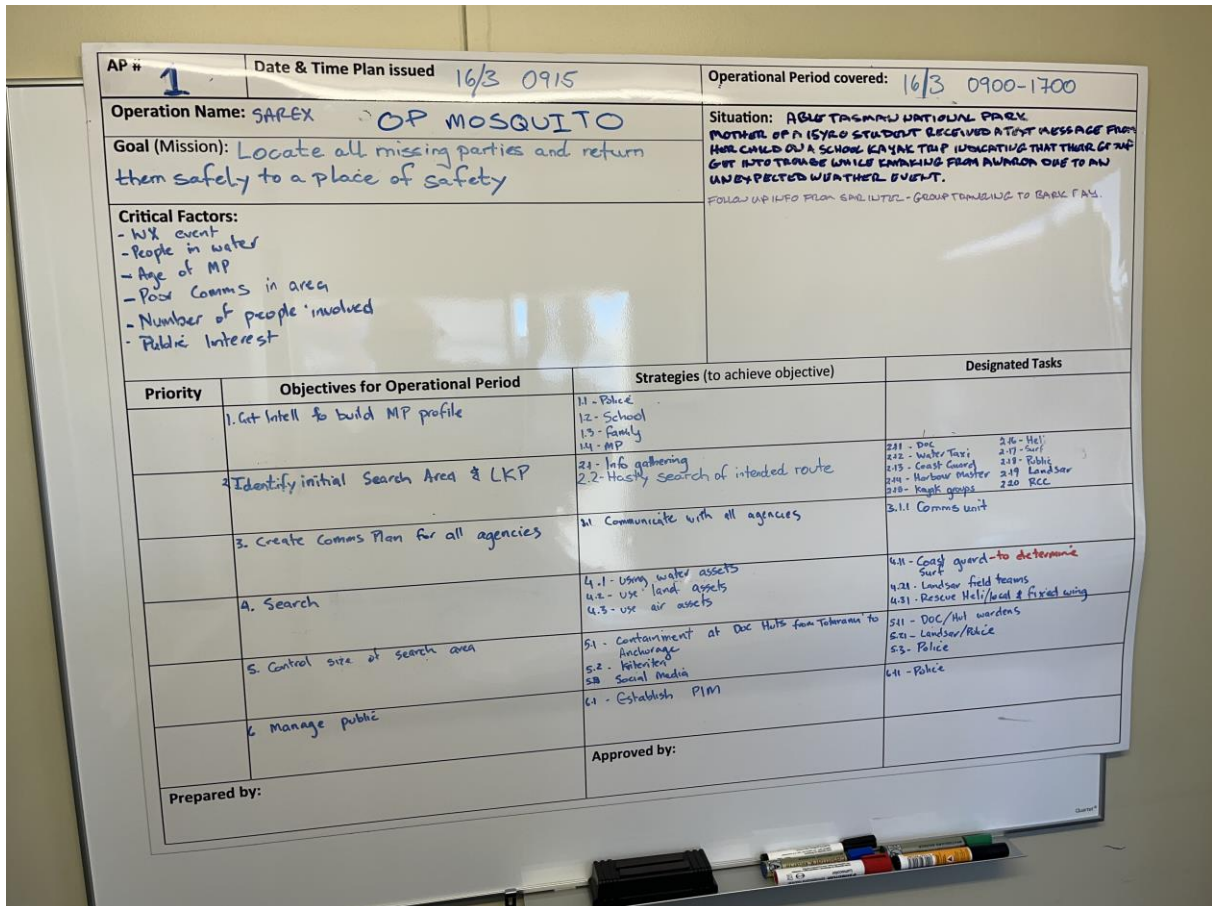 AP # 1
Date & Time Plan issued 16/3 0915
Operational Period covered: 16/3 0900-1700
Operation Name: SAREX OP MOSQUITO
Goal (Mission): Locate all missing parties and return
them safely to a place of safety
Situation: ABLE TASMAN NATIONAL PARK
MOTHER OF A 15YRO STUDENT RECEIVED A TEXT MESSAGE FROM
HER CHILD ON A SCHOOL KAYAK TRIP INDICATING THAT THEIR GROUP
GOT INTO TROUBLE WHILE KAYAKING FROM AWAROA DUE TO AN
UNEXPECTED WEATHER EVENT.
FOLLOW UP INFO FROM SAR INTEL - GROUP TRAVELING TO BARK BAY.
Critical Factors:
- WX event
- People in water
- Age of MP
- Poor Comms in area
- Number of people involved
- Public Interest
Priority
Objectives for Operational Period
Strategies (to achieve objective)
Designated Tasks
1. Get Intell to build MP profile
1.1 - Police
1.2 - School
1.3 - Family
1.4 - MP
2 Identify initial Search Area & LKP
2.1 - Info gathering
2.2 - Hasty search of intended route
2.11 - DOC
2.12 - Water Taxi
2.13 - Coast Guard
2.14 - Harbour Master
- Kayak groups
2.16 - Heli
2.17 - Surf
2.18 - Public
2.19 Landsar
2.20 RCC
3. Create Comms Plan for all agencies
3.1 Communicate with all agencies
3.1.1 Comms unit
4. Search
4.1 - Using water assets
4.2 - use land assets
4.3 - use air assets
4.11 - Coast guard - to determine
Surf
4.21 - Landsar field teams
4.31 - Rescue Heli/local & fixed wing
5. Control size of search area
5.1 - Containment at Doc Huts from Totaranui to
Anchorage
5.2 -
Social Media
5.11 - DOC/Hut wardens
5.21 - Landsar/Police
5.3 - Police
6 Manage public
6.1 - Establish PIM
6.11 - Police
Prepared by:
Approved by:
Quartet